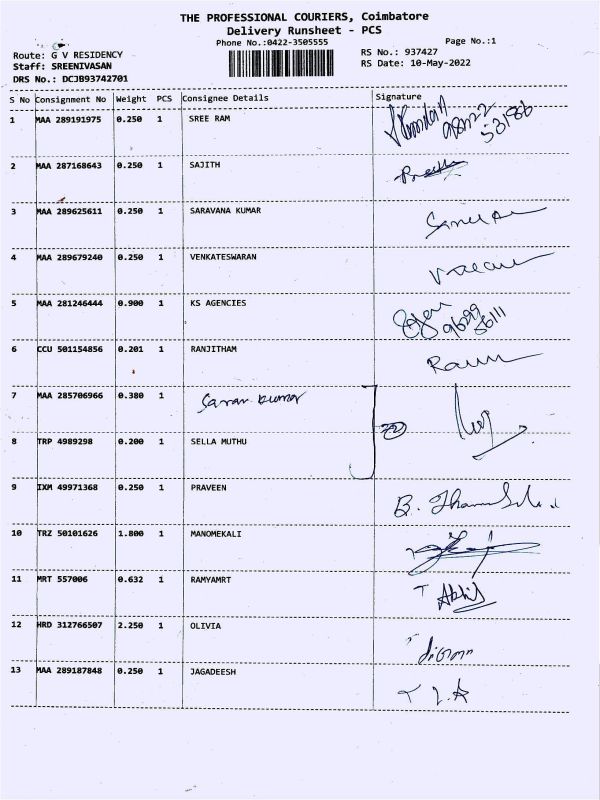 THE PROFESSIONAL COURIERS, Coimbatore
Delivery Runsheet - PCS
Phone No.:0422-3505555
Page No.:1
Route: G V RESIDENCY
RS No.: 937427
Staff: SREENIVASAN
RS Date: 10-May-2022
DRS No.: DCJB93742701
S No Consignment No Weight PCS Consignee Details Signature
1 MAA 289191975 0.250 1 SREE RAM
2 MAA 287168643 0.250 1 SAJITH
3 MAA 289625611 0.250 1 SARAVANA KUMAR
4 MAA 289679240 0.250 1 VENKATESWARAN
5 MAA 281246444 0.900 1 KS AGENCIES
6 CCU 501154856 0.201 1 RANJITHAM
7 MAA 285706966 0.380 1 Saran kumar
8 TRP 4989298 0.200 1 SELLA MUTHU
9 IXM 49971368 0.250 1 PRAVEEN
10 TRZ 50101626 1.800 1 MANOMEKALI
11 MRT 557006 0.632 1 RAMYAMRT
12 HRD 312766507 2.250 1 OLIVIA
13 MAA 289187848 0.250 1 JAGADEESH